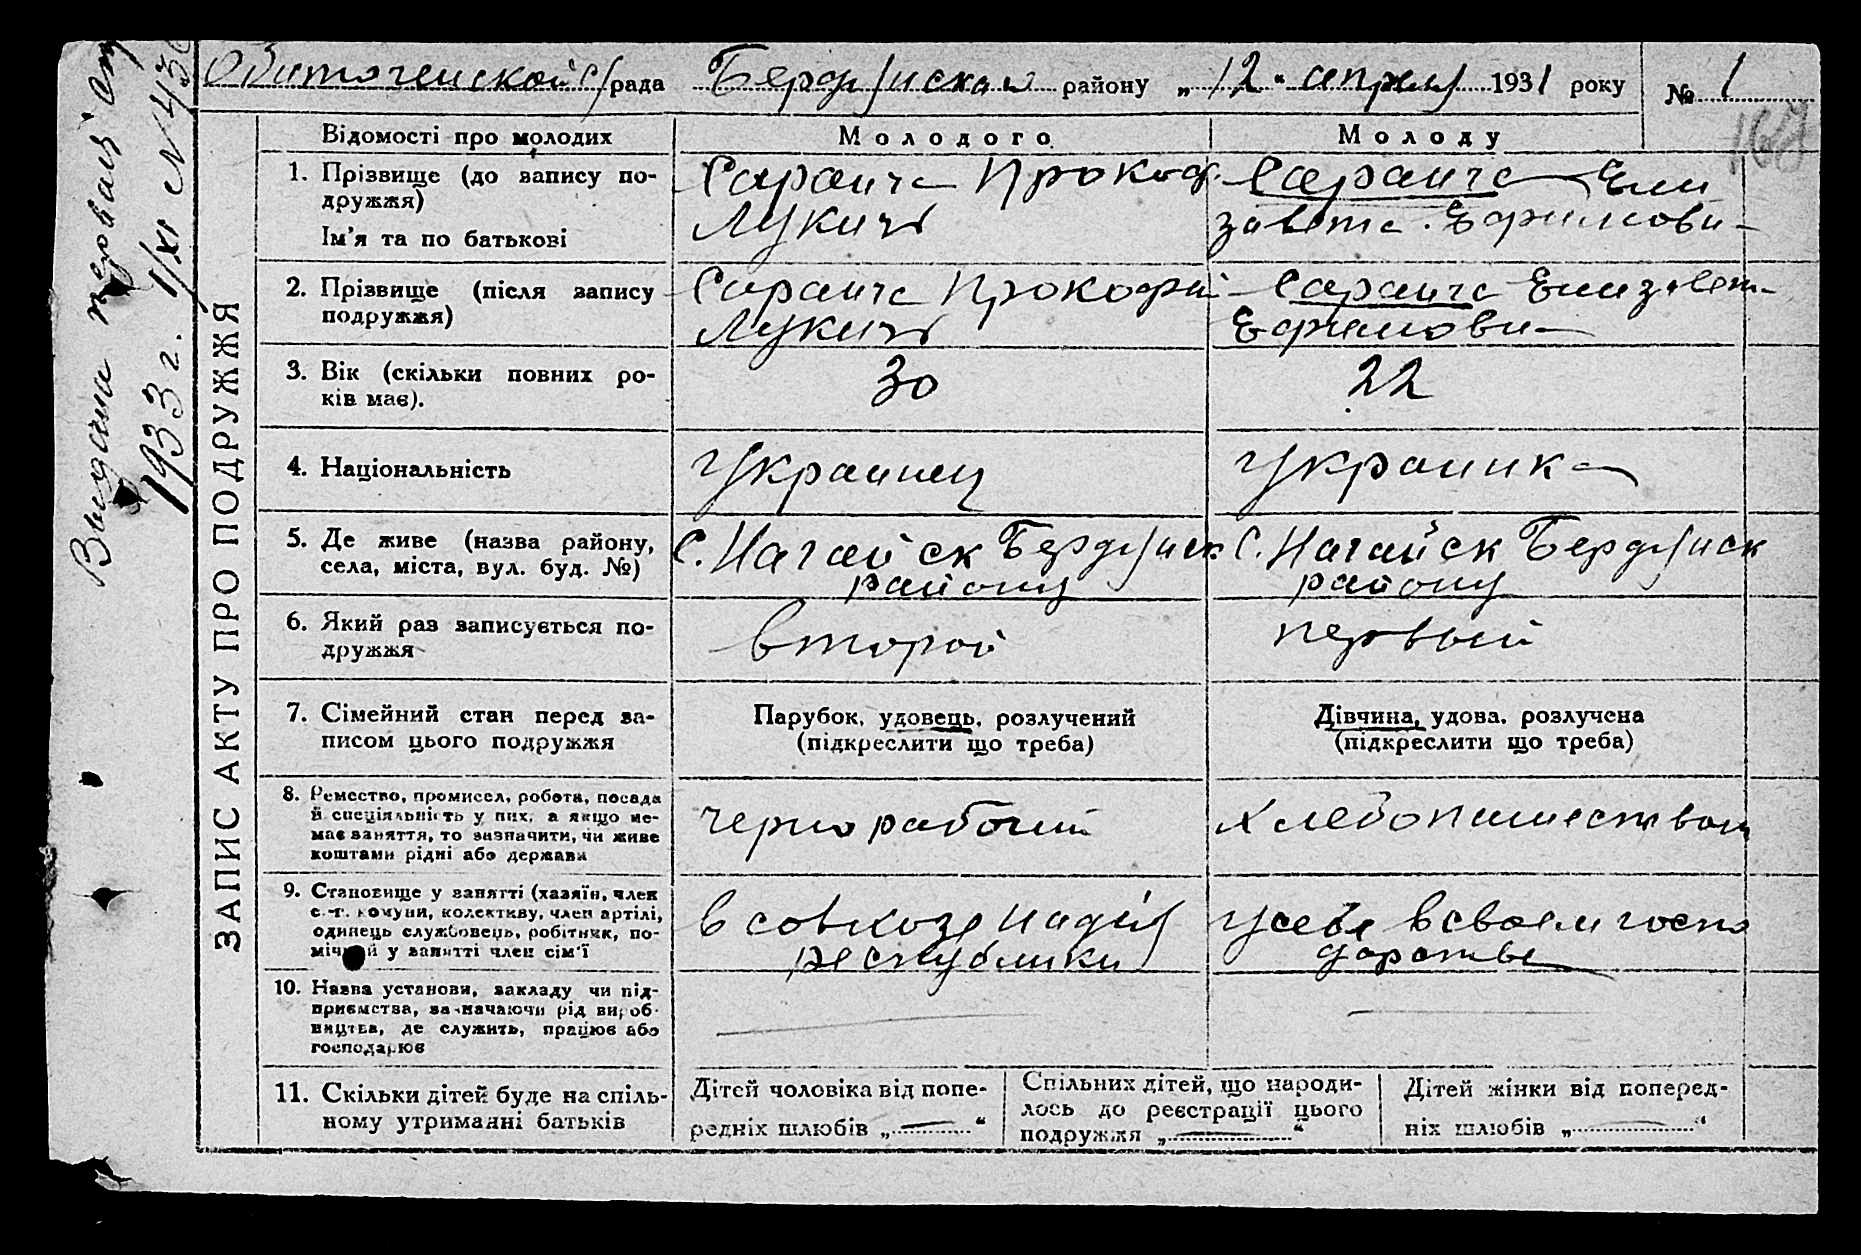 Обиточенской с/рада Бердянского району „12“ апреля 1931 року № 1
168
Выдана
1933 г. 1/XI N 43
ЗАПИС АКТУ ПРО ПОДРУЖЖЯ
Відомості про молодих
Молодого
Молоду
1. Прізвище (до запису по-
дружжя)
Ім'я та по батькові
Саранча Прокоф.
Лукич
Саранча Ели
завета Ефимовн
2. Прізвище (після запису
подружжя)
Саранча Прокофий
Лукич
Саранча Елизавет
Ефимовн
3. Вік (скільки повних ро-
ків має).
30
22
4. Національність
Украинец
Украинка
5. Де живе (назва району,
села, міста, вул. буд. №)
С. Нагайск Бердянск
району
С. Нагайск Бердянск
району
6. Який раз записується по-
дружжя
второй
первый
7. Сімейний стан перед за-
писом цього подружжя
Парубок, удовець, розлучений
(підкреслити що треба)
Дівчина, удова, розлучена
(підкреслити що треба)
8. Ремество, промисел, робота, посада
й спеціяльність у них, а якщо не-
має заняття, то зазначити, чи живе
коштами рідні або держави
чернорабочий
хлебопашеством
9. Становище у занятті (хазяїн, член
с.-г. комуни, колективу, член артілі,
одинець службовець, робітник, по-
мічний у занятті член сім'ї
в совхозе Надія
республики
у себе в своем госпо
дарстве
10. Назва установи, закладу чи під-
приємства, зазначаючи рід вироб-
ництва, де служить, працює або
господарює
11. Скільки дітей буде на спіль-
ному утриманні батьків
Дітей чоловіка від попе-
редніх шлюбів „—“
Спільних дітей, що народи-
лось до реєстрації цього
подружжя „—“
Дітей жінки від поперед-
ніх шлюбів „—“